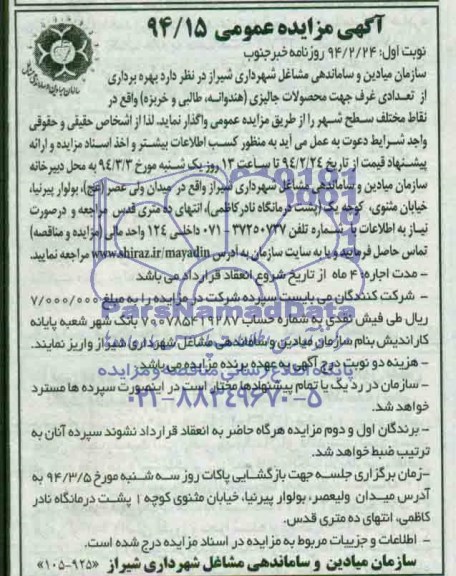 آگهی مزایده عمومی ۹۴/۱۵
نوبت اول: ۹۴/۲/۲۴ روزنامه خبرجنوب
سازمان میادین و ساماندهی مشاغل شهرداری شیراز در نظر دارد بهره برداری
از تعدادی غرف جهت محصولات جالیزی (هندوانه، طالبی و خربزه) واقع در
نقاط مختلف سطح شهر را از طریق مزایده عمومی واگذار نماید. لذا از اشخاص حقیقی و حقوقی
واجد شرایط دعوت به عمل می آید به منظور کسب اطلاعات بیشتر و اخذ اسناد مزایده و ارائه
پیشنهاد قیمت از تاریخ ۹۴/۲/۲۴ تا ساعت ۱۳ روز یک شنبه مورخ ۹۴/۳/۳ به محل دبیرخانه
سازمان میادین و ساماندهی مشاغل شهرداری شیراز واقع در میدان ولی عصر(عج)، بولوار پیرنیا،
خیابان مثنوی، کوچه یک (پشت درمانگاه نادر کاظمی)، انتهای ده متری قدس مراجعه و درصورت
نیاز به اطلاعات با شماره تلفن ۳۷۲۵۰۷۳۷ - ۰۷۱ داخلی ۱۲۴ واحد مالی (مزایده و مناقصه)
تماس حاصل فرمایید و یا به سایت سازمان به آدرس www.shiraz.ir/mayadin مراجعه نمایید.
- مدت اجاره: ۴ ماه از تاریخ شروع انعقاد قرارداد می باشد
- شرکت کنندگان می بایست سپرده شرکت در مزایده را به مبلغ ۷/۰۰۰/۰۰۰
ریال طی فیش نقدی به شماره حساب ۷۰۰۷۸۵۴۱۹۲۸۷ بانک شهر شعبه پایانه
کاراندیش بنام سازمان میادین و ساماندهی مشاغل شهرداری شیراز واریز نمایند.
- هزینه دو نوبت درج آگهی به عهده برنده مزایده می باشد.
- سازمان در رد یک یا تمام پیشنهادها مختار است در اینصورت سپرده ها مسترد
خواهد شد.
- برندگان اول و دوم مزایده هرگاه حاضر به انعقاد قرارداد نشوند سپرده آنان به
ترتیب ضبط خواهد شد.
- زمان برگزاری جلسه جهت بازگشایی پاکات روز سه شنبه مورخ ۹۴/۳/۵ به
آدرس میدان ولیعصر، بولوار پیرنیا، خیابان مثنوی کوچه ۱ پشت درمانگاه نادر
کاظمی، انتهای ده متری قدس.
- اطلاعات و جزییات مربوط به مزایده در اسناد مزایده درج شده است.
سازمان میادین و ساماندهی مشاغل شهرداری شیراز «۱۰۵-۹۲۵»
ParsNamadData
پایگاه اطلاع رسانی مناقصه و مزایده
۰۲۱-۸۸۳۴۹۶۷۰-۵